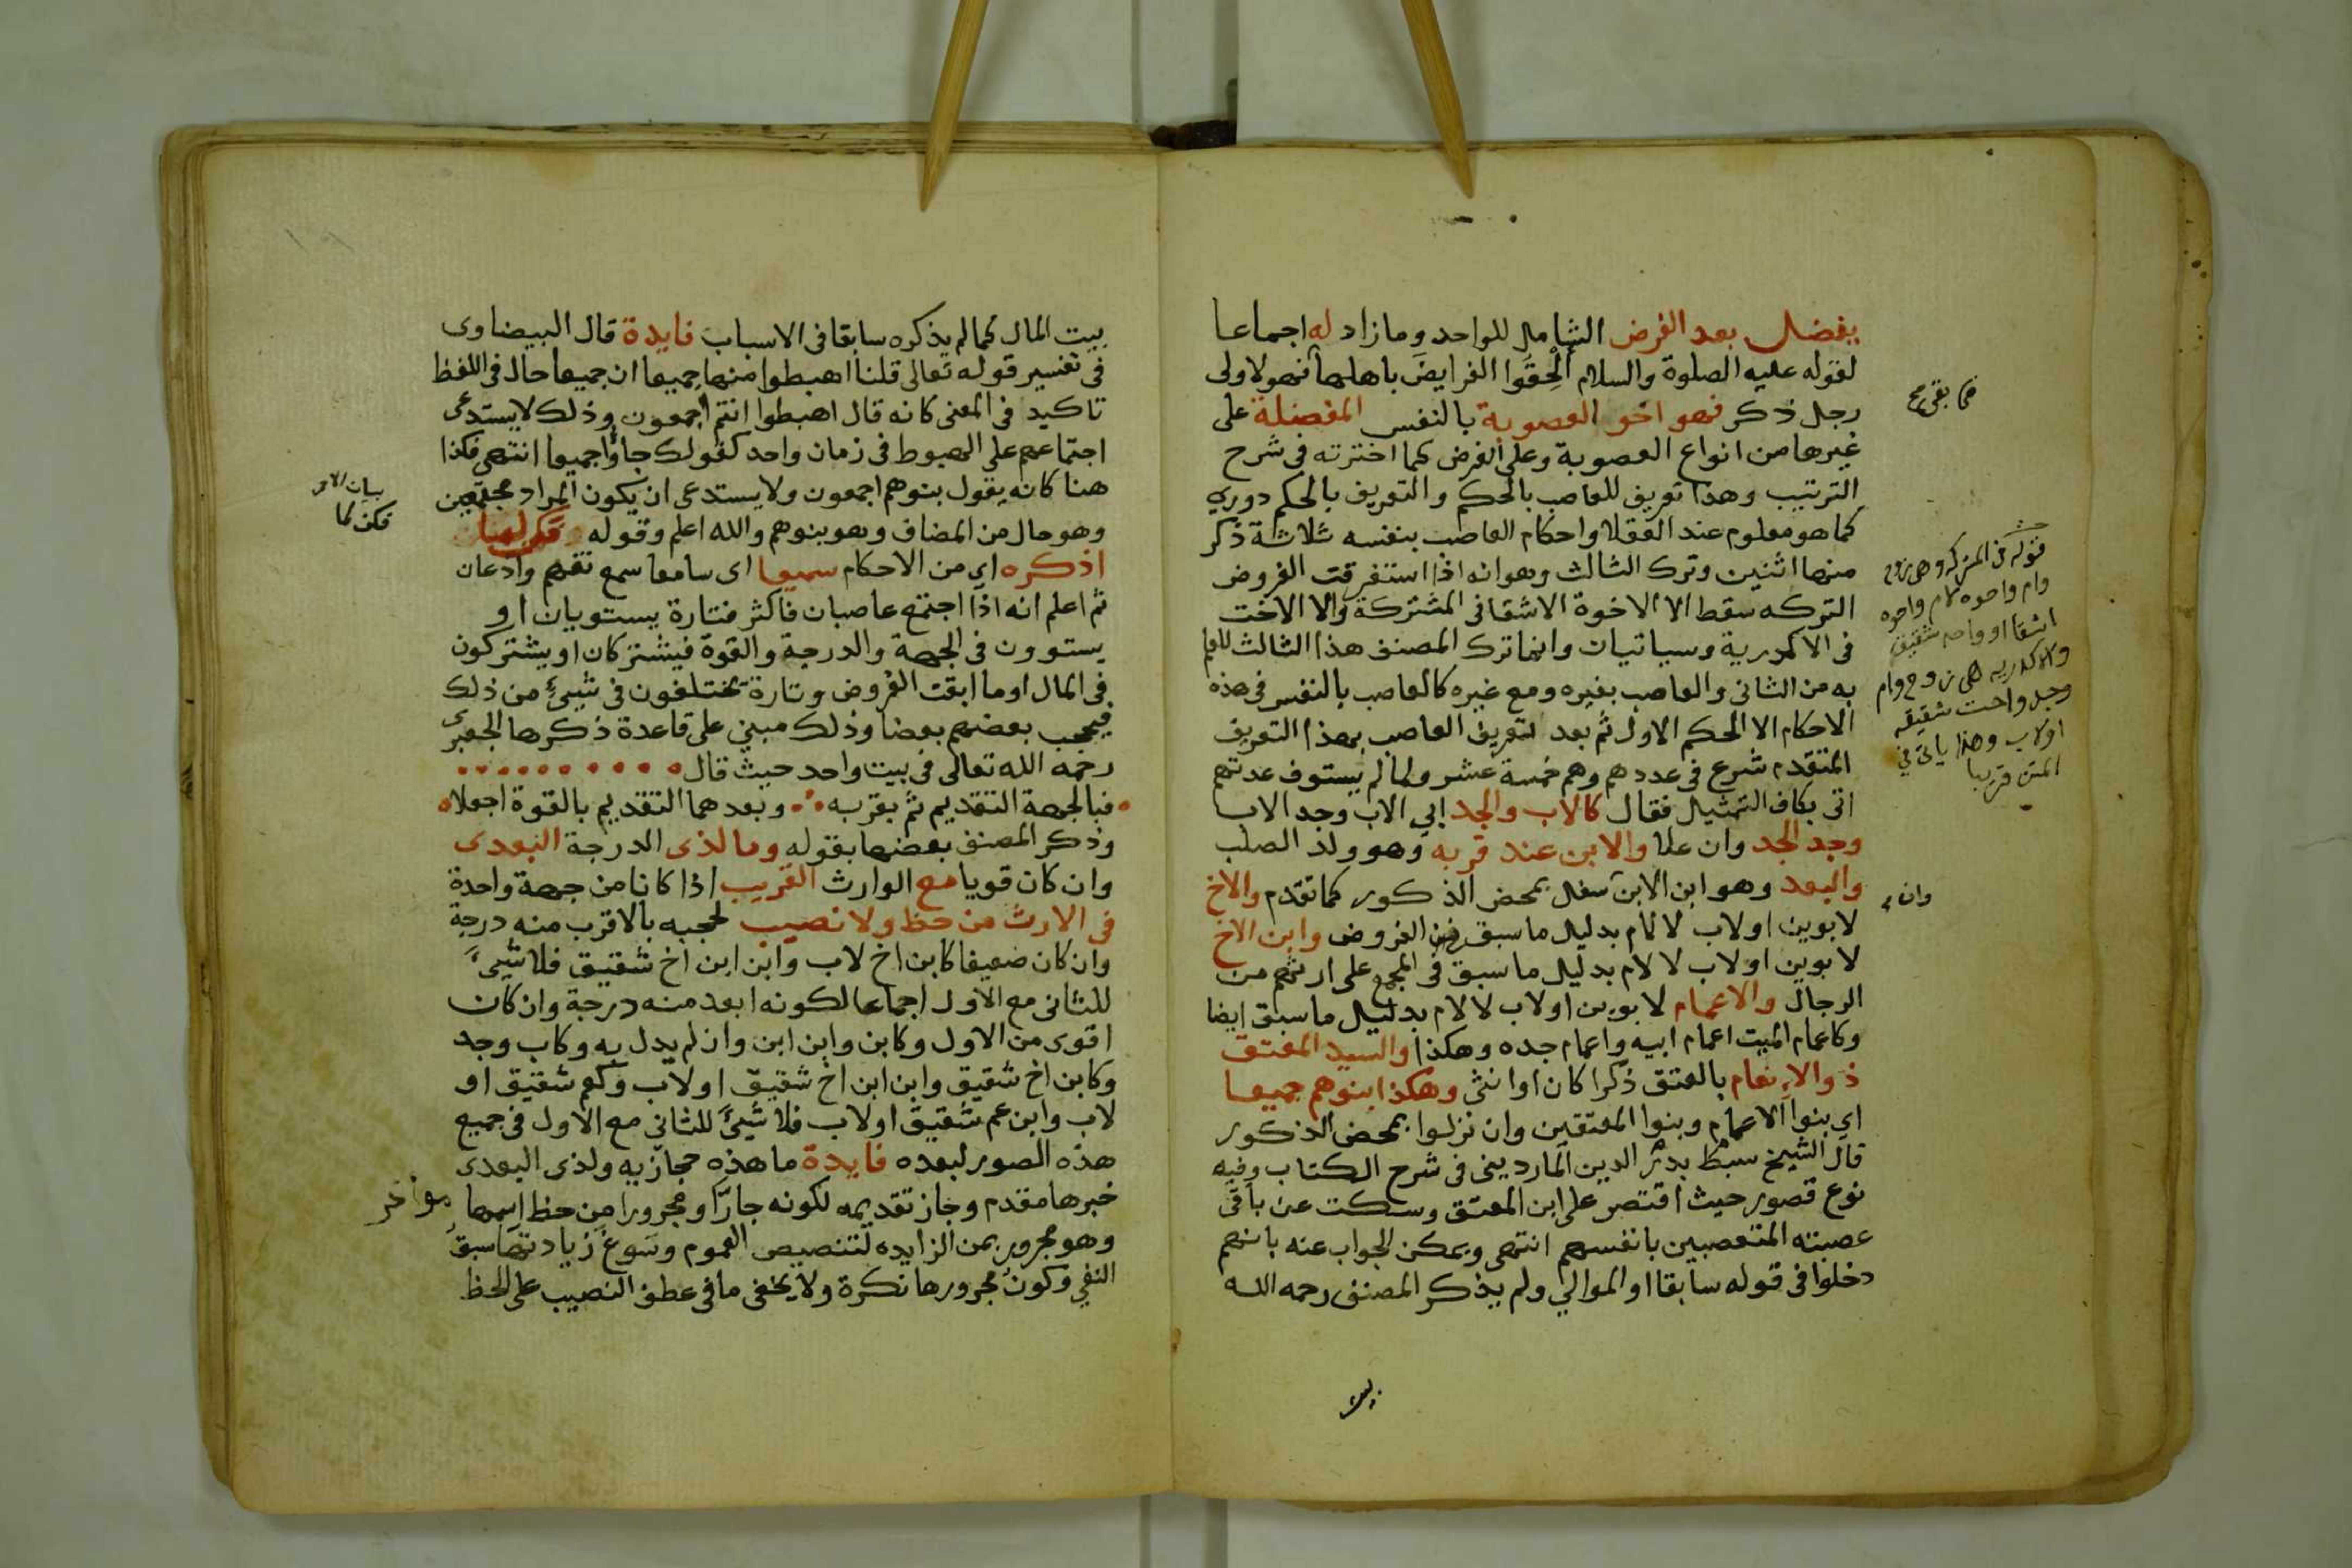 يفضل بعد الفرض الشامل للواحد وما زاد له اجماعا
لقوله عليه الصلوة والسلام أَلْحِقُوا الفرايضَ باهلها فهو لاولى
رجل ذكر فهو اخو العصوبة بالنفس المفضلة على
غيرها من انواع العصوبة وعلى الفرض كما اخترته في شرح
الترتيب وهذا تعريف للعاصب بالحكم والتعريف بالحكم دوري
كما هو معلوم عند العقلا واحكام العاصب بنفسه ثلاثة ذكر
منها اثنين وترك الثالث وهو انه اذا استغرقت الفروض
التركه سقط الا الاخوة الاشقا في المشتركة والا الاخت
في الاكدرية وسياتيان وانما ترك المصنف هذا الثالث للعلم
به من الثاني والعاصب بغيره ومع غيره كالعاصب بالنفس في هذه
الاحكام الا الحكم الاول ثم بعد تعريف العاصب بهذا التعريف
المتقدم شرع في عددهم وهم خمسة عشر ولما لم يستوف عدتهم
اتى بكاف التمثيل فقال كالاب والجد ابي الاب وجد الاب
وجد الجد وان علا والابن عند قربه وهو ولد الصلب
والبعد وهو ابن الابن سفل بمحض الذكور كما تقدم والاخ
لابوين اولاب لا لام بدليل ما سبق من الفروض وابن الاخ
لابوين اولاب لا لام بدليل ما سبق في المجمع على ارثهم من
الرجال والاعمام لابوين اولاب لا لام بدليل ما سبق ايضا
وكاعمام الميت اعمام ابيه واعمام جده وهكذا والسيد المعتق
ذو الانعام بالعتق ذكرا كان او انثى وهكذا بنوهم جميعا
اي بنوا الاعمام وبنوا المعتقين وان نزلوا بمحض الذكور
قال الشيخ سبط بدر الدين المارديني في شرح الكتاب وفيه
نوع قصور حيث اقتصر على ابن المعتق وسكت عن باقي
عصبته المتعصبين بانفسهم انتهى ويمكن الجواب عنه بانهم
دخلوا في قوله سابقا او الموالي ولم يذكر المصنف رحمه الله
بيت
فما بقي صح
قوله في المشركه وهي زوج
وام واخوه لام واخوه
اشقا او واحد شقيق
والاكدريه هي زوج وام
وجد واخت شقيقه
اولاب وهذا ياتي في
المتن قريبا
وان
بيت المال كما لم يذكره سابقا في الاسباب فايدة قال البيضاوى
في تفسير قوله تعالى قلنا اهبطوا منها جميعا ان جميعا حال في اللفظ
تاكيد في المعنى كانه قال اهبطوا انتم اجمعون وذلك لا يستدعى
اجتماعهم على الهبوط في زمان واحد كقولك جاؤا جميعا انتهى فكذا
هنا كانه يقول بنوهم اجمعون ولا يستدعى ان يكون المراد مجتمعين
وهو حال من المضاف وهو بنوهم والله اعلم وقوله
اذكره اي من الاحكام سميعا اى سامعا سمع تفهم واذعان
ثم اعلم انه اذا اجتمع عاصبان فاكثر فتارة يستويان او
يستوون في الجهة والدرجة والقوة فيشتركان او يشتركون
في المال او ما ابقت الفروض وتارة يختلفون في شيئ من ذلك
فيحجب بعضهم بعضا وذلك مبني على قاعدة ذكرها الجعبرى
رحمه الله تعالى في بيت واحد حيث قال
فبالجهة التقديم ثم بقربه وبعدهما التقديم بالقوة اجعلا
وذكر المصنف بعضها بقوله وما لذى الدرجة البعدى
وان كان قويا مع الوارث القريب اذا كانا من جهة واحدة
في الارث من حظ ولا نصيب لحجبه بالاقرب منه درجة
وان كان ضعيفا كابن اخ لاب وابن ابن اخ شقيق فلا شيئ
للثاني مع الاول اجماعا لكونه ابعد منه درجة وان كان
اقوى من الاول وكابن وابن ابن وان لم يدل به وكاب وجد
وكابن اخ شقيق وابن ابن اخ شقيق اولاب وكعم شقيق او
لاب وابن عم شقيق اولاب فلا شيئ للثاني مع الاول في جميع
هذه الصور لبعده فايدة ما هذه حجازيه ولذى البعدى
خبرها مقدم وجاز تقديمه لكونه جارًّا ومجرورا من حظ اسمها مؤخر
وهو مجرور بمن الزايده لتنصيص العموم وسَوغ زيادتها سبق
النفي وكون مجرورها نكرة ولا يخفى ما في عطف النصيب على الحظ
بيان الامر
فكن لما